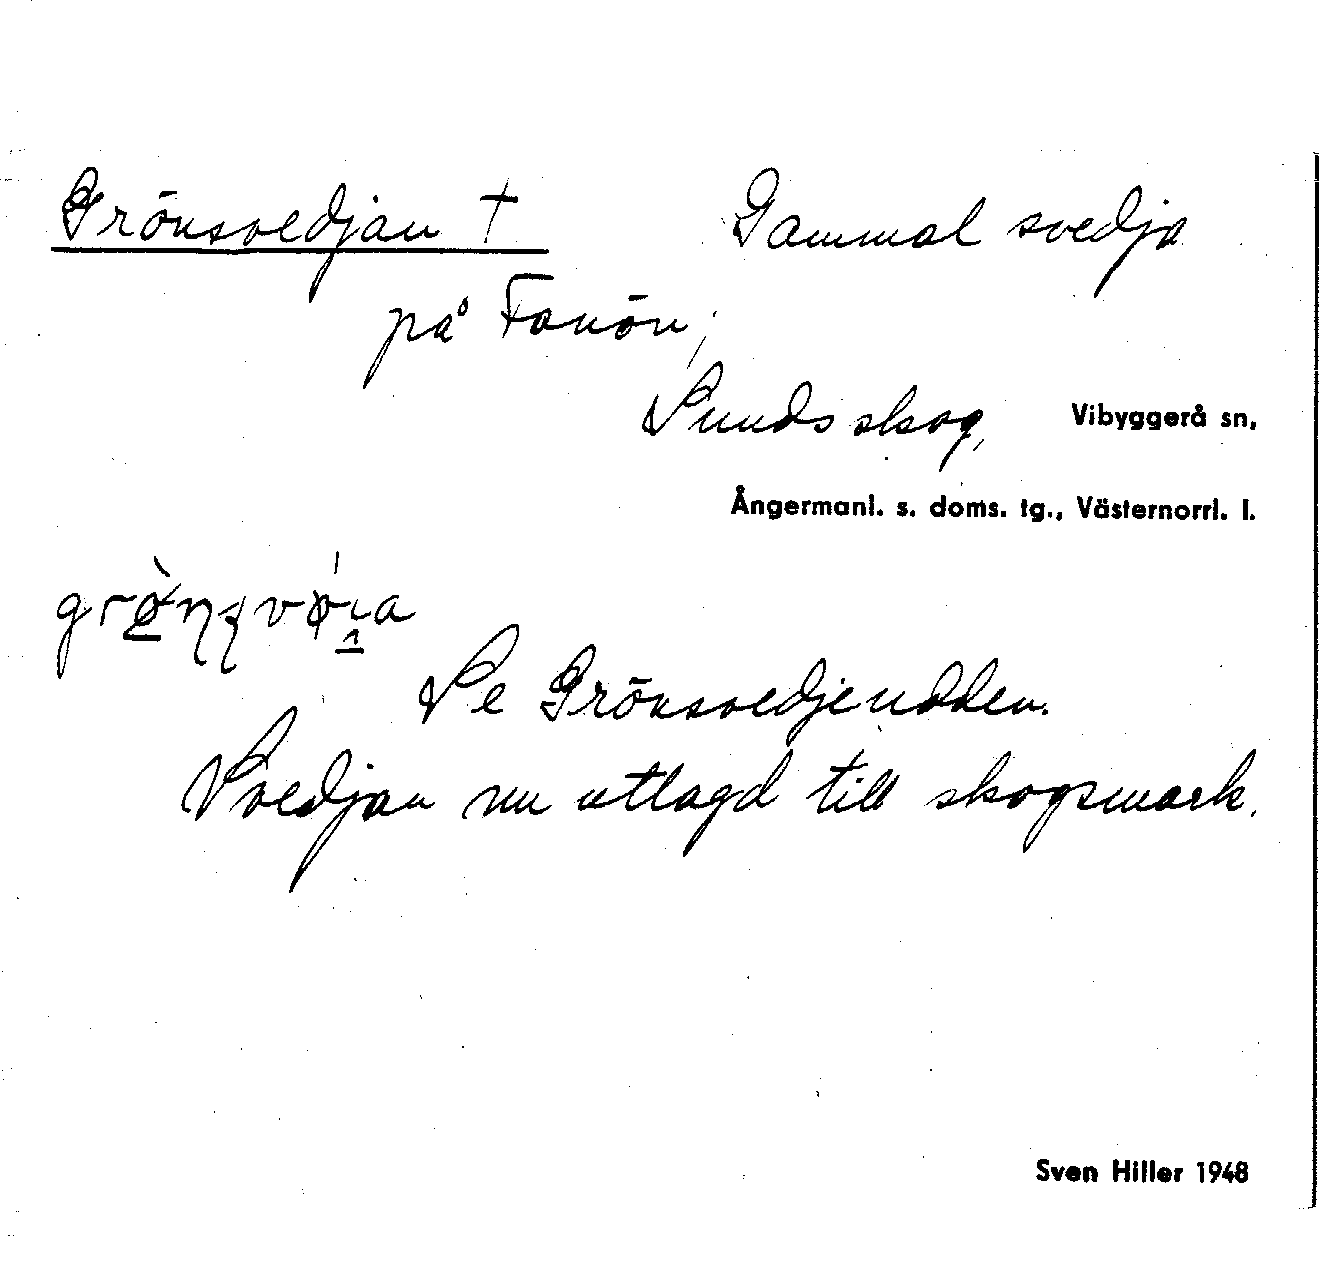 Grönsvedjan † Gammal svedja
på Fanön,
Sundsskog, Vibyggerå sn,
Ångermanl. s. doms. tg., Västernorrl. l.
Se Grönsvedjeudden.
Svedjan nu utlagd till skogsmark.
Sven Hiller 1948